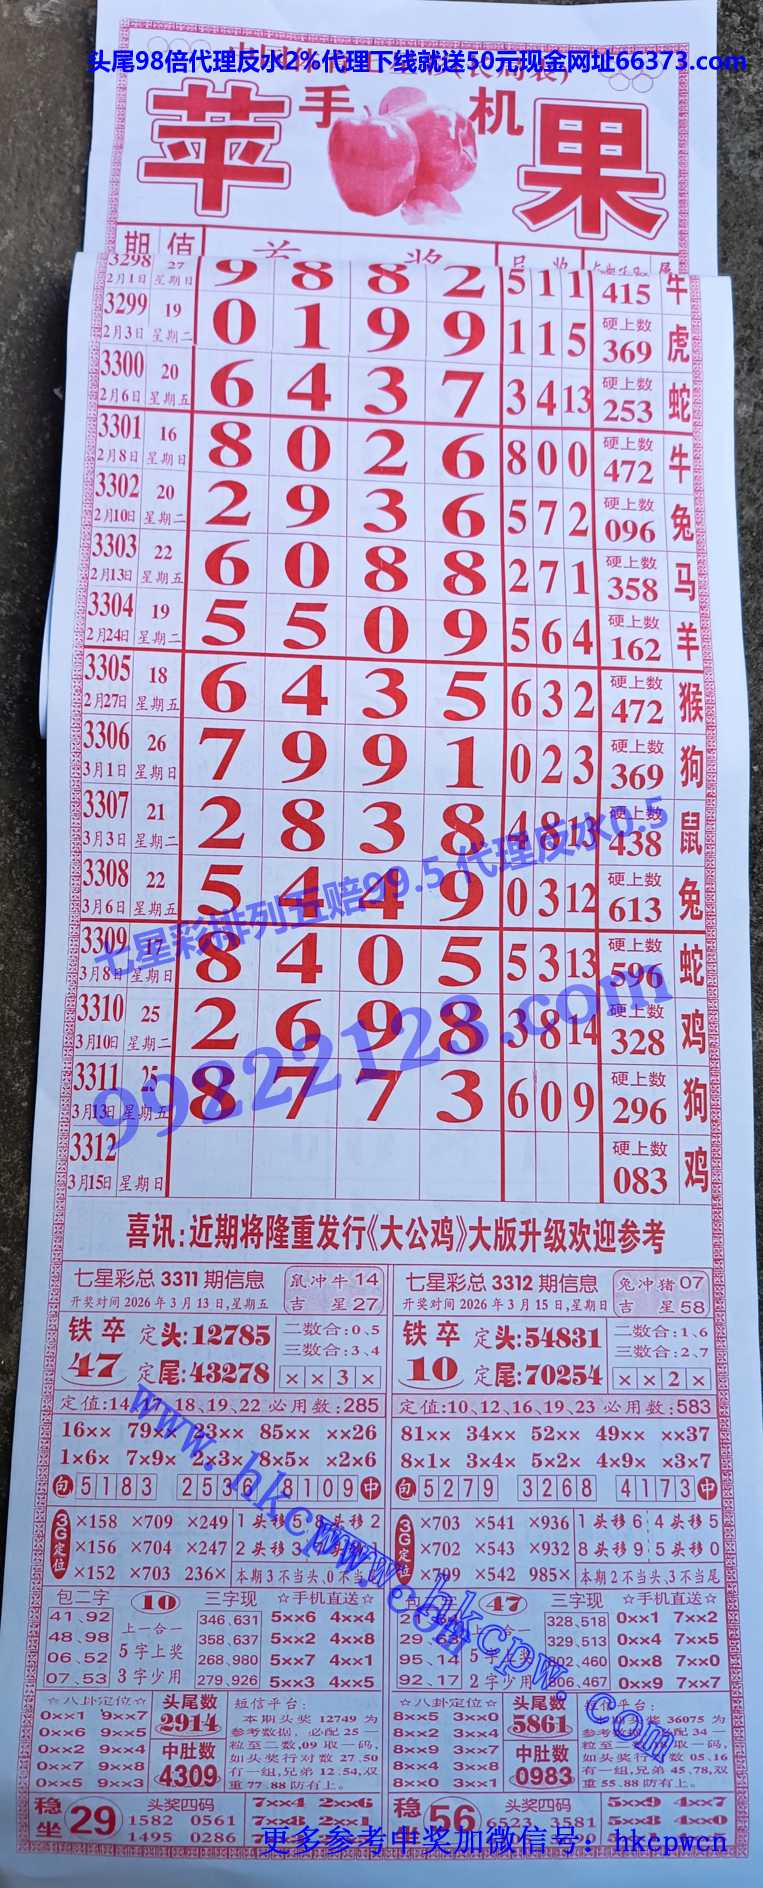 头尾98倍代理反水2%代理下线就送50元现金网址66373.com
苹 手 机 果
期 值
3298 27 9 8 8 2 5 1 1 415 牛
2月1日 星期日
3299 19 0 1 9 9 1 1 5 硬上数 369 虎
2月3日 星期二
3300 20 6 4 3 7 3 4 13 硬上数 253 蛇
2月6日 星期五
3301 16 8 0 2 6 8 0 0 硬上数 472 牛
2月8日 星期日
3302 20 2 9 3 6 5 7 2 硬上数 096 兔
2月10日 星期二
3303 22 6 0 8 8 2 7 1 硬上数 358 马
2月13日 星期五
3304 19 5 5 0 9 5 6 4 硬上数 162 羊
2月24日 星期二
3305 18 6 4 3 5 6 3 2 硬上数 472 猴
2月27日 星期五
3306 26 7 9 9 1 0 2 3 硬上数 369 狗
3月1日 星期日
3307 21 2 8 3 8 4 8 13 硬上数 438 鼠
3月3日 星期二
3308 22 5 4 4 9 0 3 12 硬上数 613 兔
3月6日 星期五
七星彩排列五赔99.5 代理反水0.5
3309 17 8 4 0 5 5 3 13 硬上数 596 蛇
3月8日 星期日
3310 25 2 6 9 8 3 8 14 硬上数 328 鸡
3月10日 星期二
99822123.com
3311 25 8 7 7 3 6 0 9 硬上数 296 狗
3月13日 星期五
3312 硬上数 083 鸡
3月15日 星期日
喜讯:近期将隆重发行《大公鸡》大版升级欢迎参考
七星彩总 3311 期信息
开奖时间 2026 年 3 月 13 日,星期五
鼠冲牛 14
吉 星 27
铁卒 定头:12785
47 定尾:43278
二数合:0、5
三数合:3、4
× × 3 ×
定值:14、17、18、19、22 必用数:285
16×× 79×× 23×× 85×× ××26
1×6× 7×9× 2×3× 8×5× ×2×6
包 5183 2536 8109 中
3G定位
×158 ×709 ×249 1 头移 5 8 头移 2
×156 ×704 ×247 2 头移
×152 ×703 236× 本期 3 不当头、0 不当
包二字 10 三字现 ☆手机直送☆
41、92 上一合一 346、631 5××6 4××4
48、98 5 字上奖 358、637 5××2 4××8
06、52 3 字少用 268、980 5××7 4××1
07、53 279、926 5××3 4××5
☆八卦定位☆
0××1 9××7
0××6 9××5
0××2 9××4
0××7 9××8
0××5 9××3
头尾数
2914
中肚数
4309
短信平台:
本期头奖 12749 为
参考数据，必配 25 一
粒至二数,09 取一码,
如头奖行对数 27、50
有一组,兄弟 12、54,双
重 77、88 防有上。
稳坐 29
头奖四码
1582 0561
1495 0286
7××4 2××6
7××8 2××1
七星彩总 3312 期信息
开奖时间 2026 年 3 月 15 日,星期日
兔冲猪 07
吉 星 58
铁卒 定头:54831
10 定尾:70254
二数合:1、6
三数合:2、7
× × 2 ×
定值:10、12、16、19、23 必用数:583
81×× 34×× 52×× 49×× ××37
8×1× 3×4× 5×2× 4×9× ×3×7
包 5279 3268 4173 中
3G定位
×703 ×541 ×936 1 头移 6 4 头移 5
×702 ×543 ×932 8 头移 9 5 头移 0
×709 ×542 985× 本期 2 不当头、3 不当尾
47 三字现 ☆手机直送☆
328、518 0××1 7××2
329、513 0××4 7××5
95、14 5 字上奖 802、460 0××8 7××0
92、17 2 字少用 806、467 0××9 7××7
☆八卦定位☆
8××5 3××0
8××2 3××4
8××9 3××1
8××4 3××8
8××0 3××1
头尾数
5861
中肚数
0983
短信平台:
本期头奖 36075 为
参考数据,必配 34 一
粒至二数,09 取一码,
如头奖行对数 05、16
有一组,兄弟 45、78,双
重 55、88 防有上。
稳坐 56
头奖四码
6523 3581
5××9 4××7
www.hkcpw.com
www.hkcpw.com
更多参考中奖加微信号: hkcpwcn